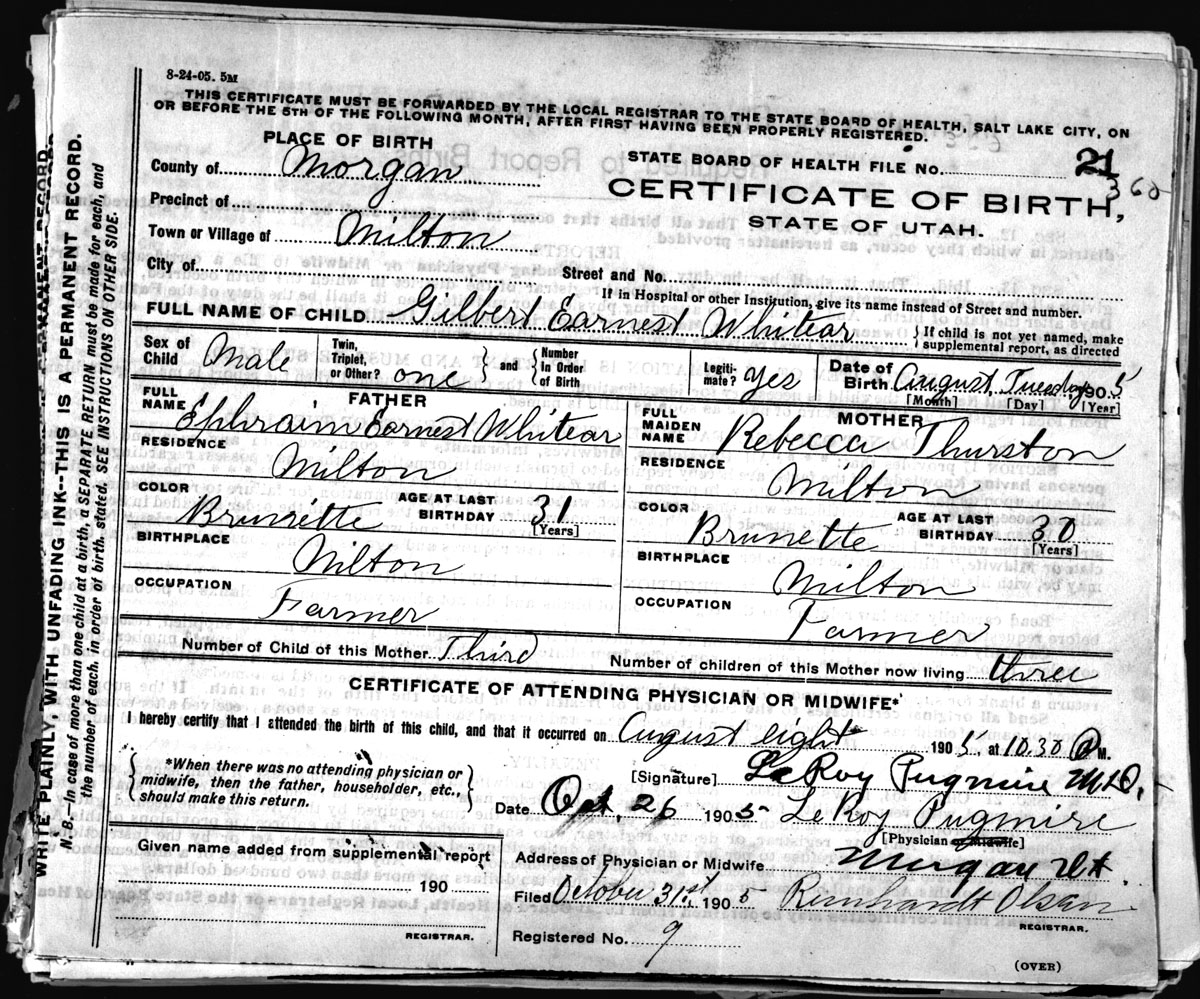 8-24-05. 5M
THIS CERTIFICATE MUST BE FORWARDED BY THE LOCAL REGISTRAR TO THE STATE BOARD OF HEALTH, SALT LAKE CITY, ON
OR BEFORE THE 5TH OF THE FOLLOWING MONTH, AFTER FIRST HAVING BEEN PROPERLY REGISTERED.
PLACE OF BIRTH
STATE BOARD OF HEALTH FILE No. 21
360
County of Morgan
CERTIFICATE OF BIRTH,
STATE OF UTAH.
Precinct of
Town or Village of Milton
City of Street and No.
If in Hospital or other Institution, give its name instead of Street and number.
FULL NAME OF CHILD Gilbert Earnest Whitear { If child is not yet named, make supplemental report, as directed
Sex of Child Male Twin, Triplet, or Other? one } and { Number In Order of Birth Legiti-mate? yes Date of Birth August, Tuesday 1905
[Month] [Day] [Year]
FATHER
FULL NAME Ephraim Earnest Whitear
RESIDENCE
Milton
COLOR Brunette AGE AT LAST BIRTHDAY 31
[Years]
BIRTHPLACE
Milton
OCCUPATION
Farmer
MOTHER
FULL MAIDEN NAME Rebecca Thurston
RESIDENCE
Milton
COLOR Brunette AGE AT LAST BIRTHDAY 30
[Years]
BIRTHPLACE
Milton
OCCUPATION
Farmer
Number of Child of this Mother Third Number of children of this Mother now living three
CERTIFICATE OF ATTENDING PHYSICIAN OR MIDWIFE*
I hereby certify that I attended the birth of this child, and that it occurred on August eight 1905, at 10.30 P M.
{ *When there was no attending physician or midwife, then the father, householder, etc., should make this return. }
[Signature] LeRoy Pugmire M.D.
Date Oct. 26 1905 LeRoy Pugmire
[Physician or Midwife]
Given name added from supplemental report
190
REGISTRAR.
Address of Physician or Midwife Morgan Ut.
Filed October 31st, 1905 Reinhardt Olsen
REGISTRAR.
Registered No. 9
(OVER)
WRITE PLAINLY, WITH UNFADING INK--THIS IS A PERMANENT RECORD.
N.B.--In case of more than one child at a birth, a SEPARATE RETURN must be made for each, and
the number of each, in order of birth, stated. SEE INSTRUCTIONS ON OTHER SIDE.